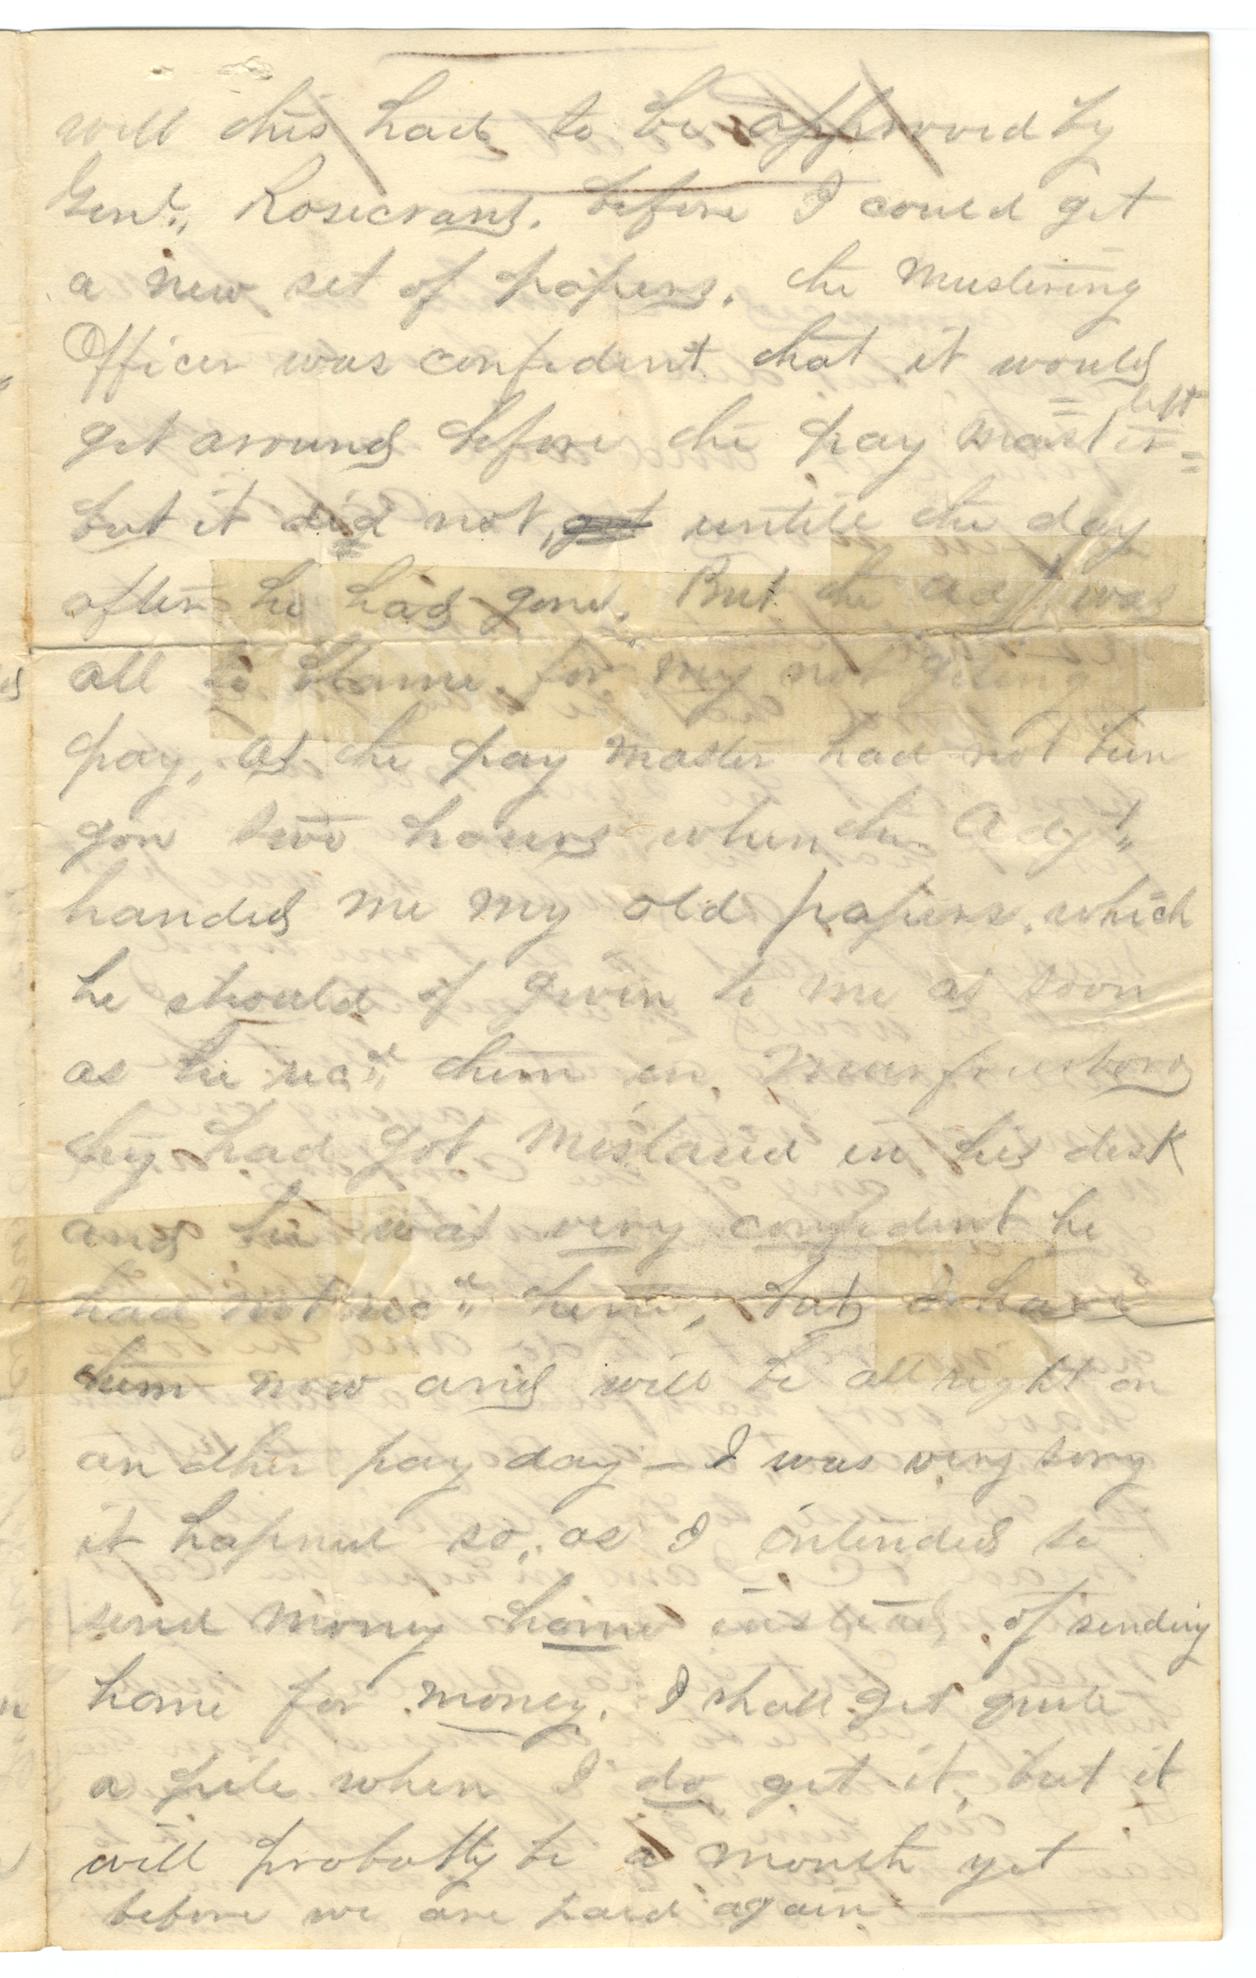 will this had to be approved by
Genl,, Rosecrans. before I could get
a new set of papers. the Mustering
Officer was confident that it would
get around before the pay master left
but it did not, got untill the day
after he had gone. But the Adjt was
all to blame for my not geting
pay, as the pay master had not been
gon two hours when the Adjt,,
handed me my old papers. which
he should of given to me as soon
as he recd,, them in Mearfreesboro
they had got mislaid in his desk
and he was very confident he
had not recd,, them, but I have
them now and will be all right on
an other pay day — I was very sorry
it hapned so,, as I intended to
send money home instead of sending
home for money. I shall get quite
a pile when I do get it, but it
will probably be a month yet
before we are paid again —